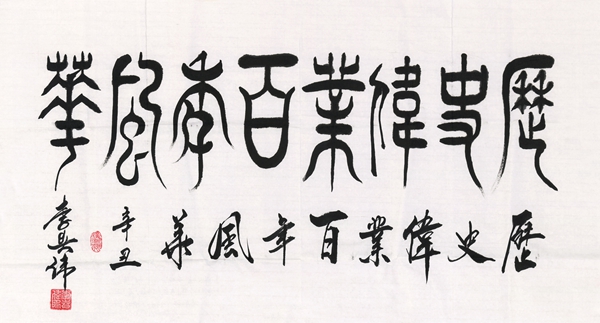 歷史偉業百年風華
歷史偉業百年風華
辛丑
李具緯